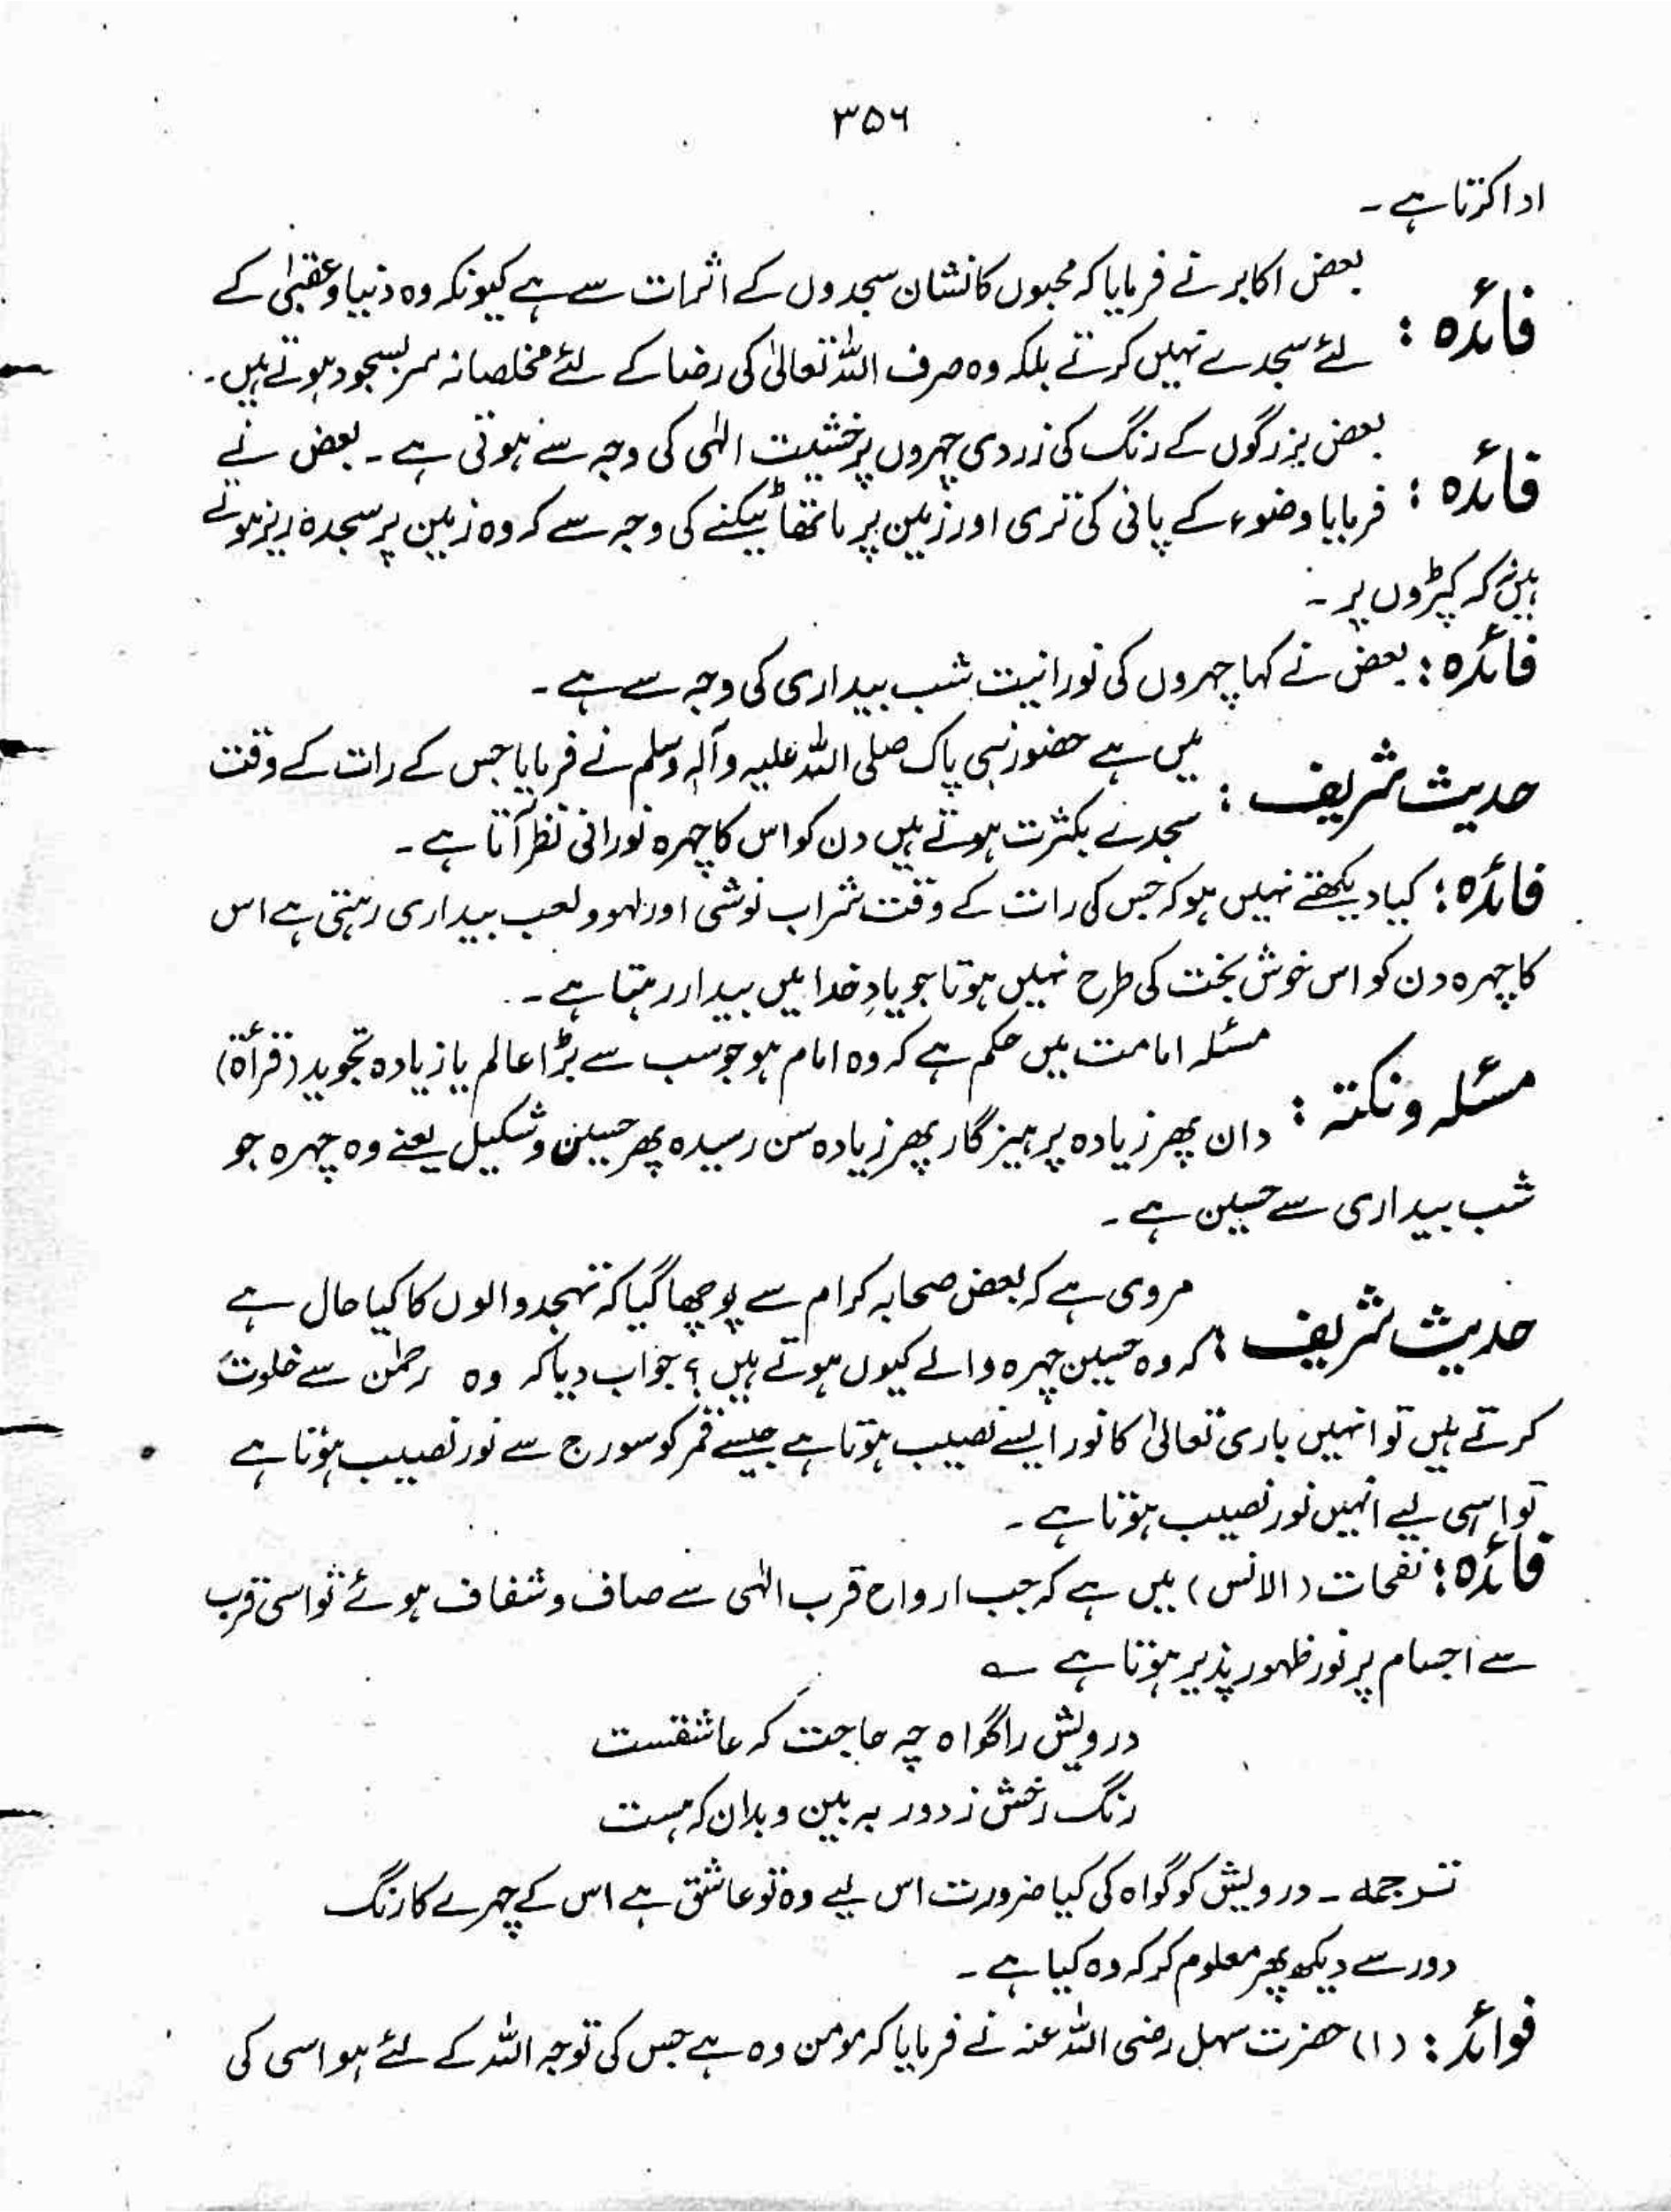 ۳۵۶
ادا کرتا ہے ۔
بعض اکابر نے فرمایا کہ محبوں کا نشان سجدوں کے اثرات سے ہے کیونکہ وہ دنیا و عقبیٰ کے
فائدہ :
لئے سجدے نہیں کرتے بلکہ وہ صرف اللہ تعالیٰ کی رضا کے لئے مخلصانہ سر بسجود ہوتے ہیں ۔
بعض بزرگوں کے رنگ کی زردی چہروں پر خشیت الٰہی کی وجہ سے ہوتی ہے ۔ بعض نے
فائدہ :
فرمایا وضوء کے پانی کی تری اور زمین پر ماتھا ٹیکنے کی وجہ سے کہ وہ زمین پر سجدہ ریز ہوتے
ہیں نہ کہ کپڑوں پر ۔
فائدہ : بعض نے کہا چہروں کی نورانیت شب بیداری کی وجہ سے ہے ۔
میں ہے حضور نبی پاک صلی اللہ علیہ وآلہٖ وسلم نے فرمایا جس کے رات کے وقت
حدیث شریف :
سجدے بکثرت ہوتے ہیں دن کو اس کا چہرہ نورانی نظر آتا ہے ۔
فائدہ : کیا دیکھتے نہیں ہو کہ جس کی رات کے وقت شراب نوشی اور لہو و لعب بیداری رہتی ہے اس
کا چہرہ دن کو اس خوش بخت کی طرح نہیں ہوتا جو یادِ خدا میں بیدار رہتا ہے ۔
مسئلہ امامت میں حکم ہے کہ وہ امام ہو جو سب سے بڑا عالم یا زیادہ تجوید (قرأۃ)
مسئلہ و نکتہ :
دان پھر زیادہ پرہیزگار پھر زیادہ سن رسیدہ پھر حسین و شکیل یعنے وہ چہرہ جو
شب بیداری سے حسین ہے ۔
مروی ہے کہ بعض صحابہ کرام سے پوچھا گیا کہ تہجد والوں کا کیا حال ہے
حدیث شریف :
کہ وہ حسین چہرہ والے کیوں ہوتے ہیں ؟ جواب دیا کہ وہ رحمٰن سے خلوت
کرتے ہیں تو انہیں باری تعالیٰ کا نور ایسے نصیب ہوتا ہے جیسے قمر کو سورج سے نور نصیب ہوتا ہے
تو اسی لیے انہیں نور نصیب ہوتا ہے ۔
فائدہ : نفحات (الانس) میں ہے کہ جب ارواح قرب الٰہی سے صاف و شفاف ہوئے تو اسی قرب
سے اجسام پر نور ظہور پذیر ہوتا ہے ؎
درویش را گواہ چہ حاجت کہ عاشقست
رنگ رخش ز دور بہ بین و بدان کہ ہست
ترجمہ ۔ درویش کو گواہ کی کیا ضرورت اس لیے وہ تو عاشق ہے اس کے چہرے کا رنگ
دور سے دیکھ پھر معلوم کر کہ وہ کیا ہے ۔
فوائد : (۱) حضرت سہل رضی اللہ عنہ نے فرمایا کہ مومن وہ ہے جس کی توجہ اللہ کے لئے ہو اسی کی